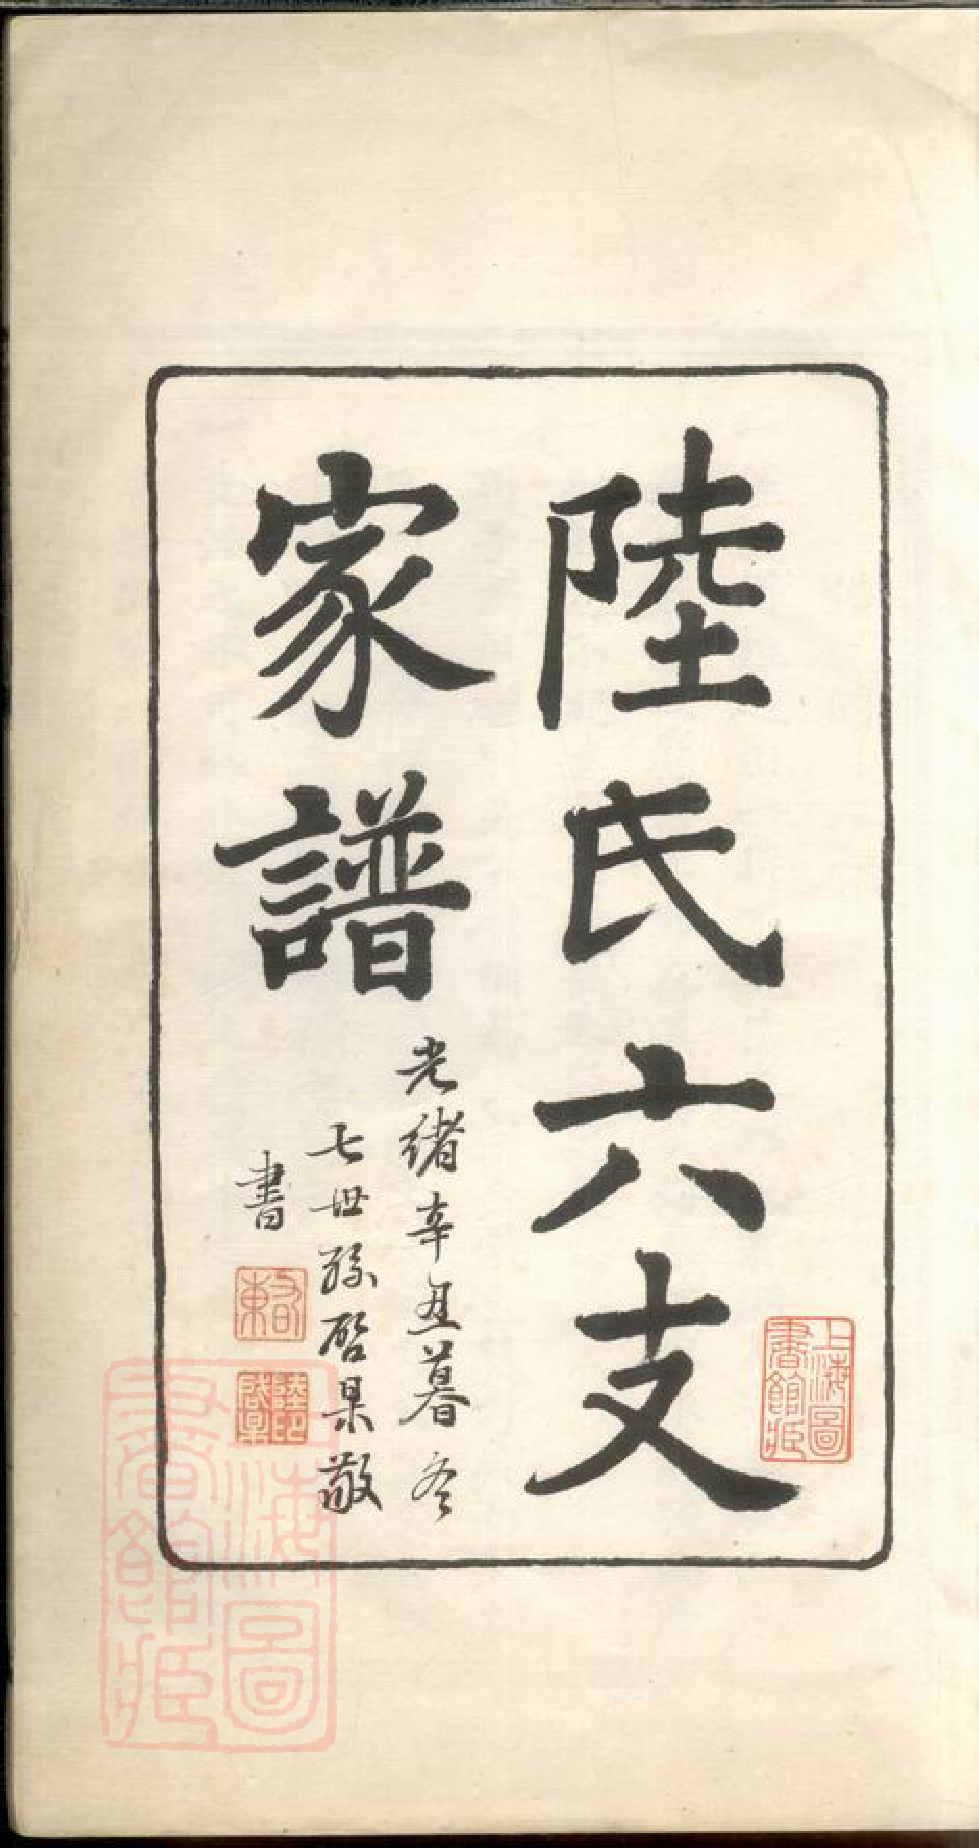 陸氏六支
家譜
光緒辛丑暮冬
七世孫啓杲敬
書
上海圖書館藏
陸印啓杲
上海圖書館藏